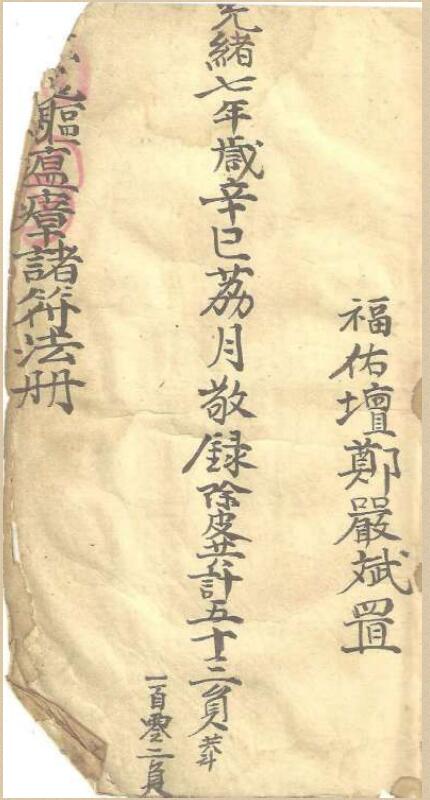 福佑壇鄭嚴斌置
光緒七年歲辛巳荔月敬録除皮共計五十二員共計
一百零二員
驅瘟瘴諸符法册